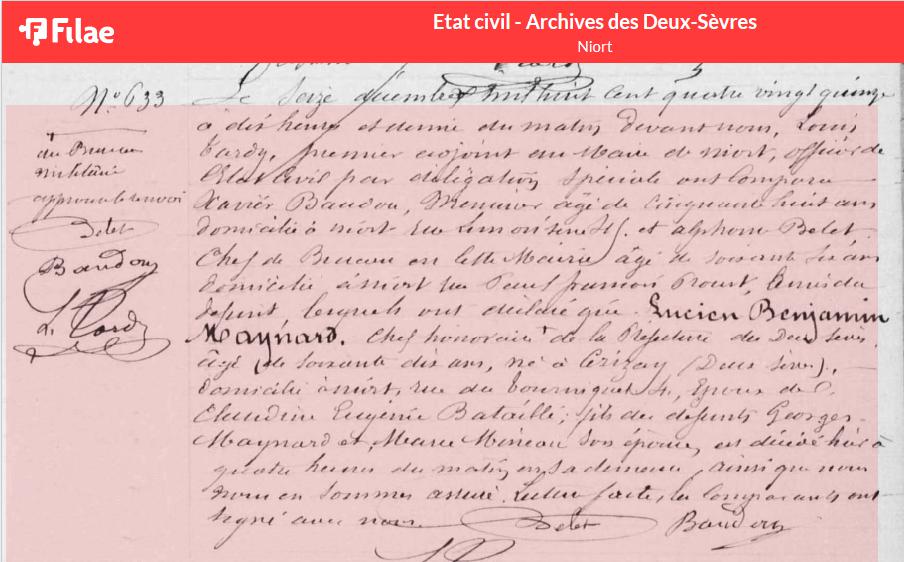 Filae
Etat civil - Archives des Deux-Sèvres
Niort
N° 633
Le Seize décembre mil huit cent quatre vingt quinze
à dix heures et demie du matin, devant nous, Louis
Tardy, premier adjoint au Maire de Niort, officier de
l'Etat Civil par délégation spéciale ont comparu
Xavier Baudou, Menuisier âgé de Cinquante huit ans
domicilié à Niort rue Limousine et alphonse Belet
Chef de Bureau en cette Mairie âgé de soixante six ans
domicilié à Niort rue Paul françois Proust, amis du
defunt lesquels ont déclaré que Lucien Benjamin
Maynard. Chef honoraire de la Préfecture des Deux Sèvres
âgé de soixante dix ans, né à Cerizay (Deux Sèvres),
domicilié à niort, rue du Tourniquet 4, Epoux de
Claudine Eugénie Bataille; fils des defunts Georges
Maynard et Marie Mineau son épouse, est décédé hier à
quatre heures du matin en sa demeure, ainsi que nous
nous en sommes assuré. Lecture faite, les Comparants ont
signé avec nous. Belet Baudou
du Bureau
militaire
approuvé le renvoi
Belet
Baudou
L. Tardy